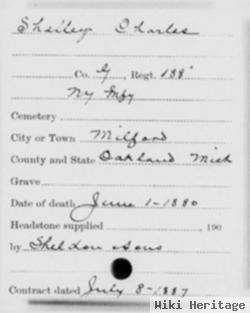 Shailey Charles
Co. G, Regt. 188"
Ny Mfy
Cemetery
City or Town Milford
County and State Oakland Mich
Grave
Date of death June 1-1880
Headstone supplied , 190
by Sheldon & Sons
Contract dated July 8-1887
Wiki Heritage